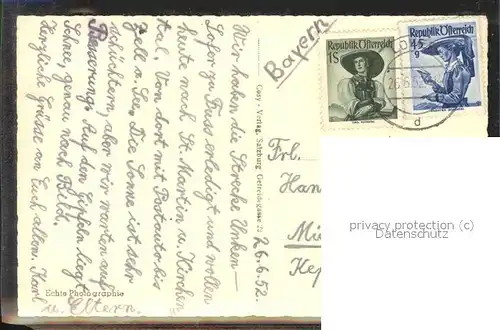 26.6.52.
Wir haben die Strecke Unken-
Lofer zu Fuss erledigt und wollen
heute nach St. Martin u. Kirchen-
tal. Von dort mit Postauto bis
Zell a. See. Die Sonne ist sehr
schüchtern, aber wir warten auf
Besserung. Auf den Gipfeln liegt
Schnee, genau nach Bild.
Herzliche Grüsse an Euch allen. Karl
u. Eltern.
Echte Photographie
Cosy - Verlag, Salzburg Getreidegasse 22
Bayern
Republik Österreich
1S
Republik Österreich
45
g
26.6.52
d
Frl.
Han
Mü
Kep
privacy protection (c)
Datenschutz